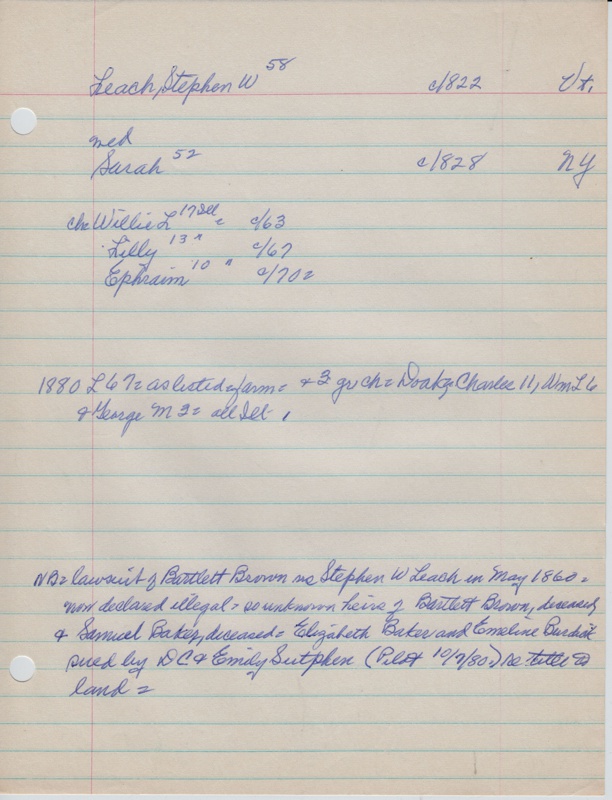 Leach, Stephen W 58 c1822 Vt.
med
Sarah 52 c1828 NY
ch= Willie L 17 Ill = c/63
Lilly 13 " c/67
Ephraim 10 " c/70=
1880 L 67= as listed= farm= + 3 gr ch= Doak= Charles 11, Wm L 6
& George M 3= all Ill.
NB= lawsuit of Bartlett Brown vs Stephen W Leach in May 1860=
now declared illegal= so unknown heirs of Bartlett Brown, deceased,
& Samuel Baker, deceased= Elizabeth Baker and Emeline Burdick
sued by DC & Emily Sutphen (Pilot 10/7/80.) re title to
land=